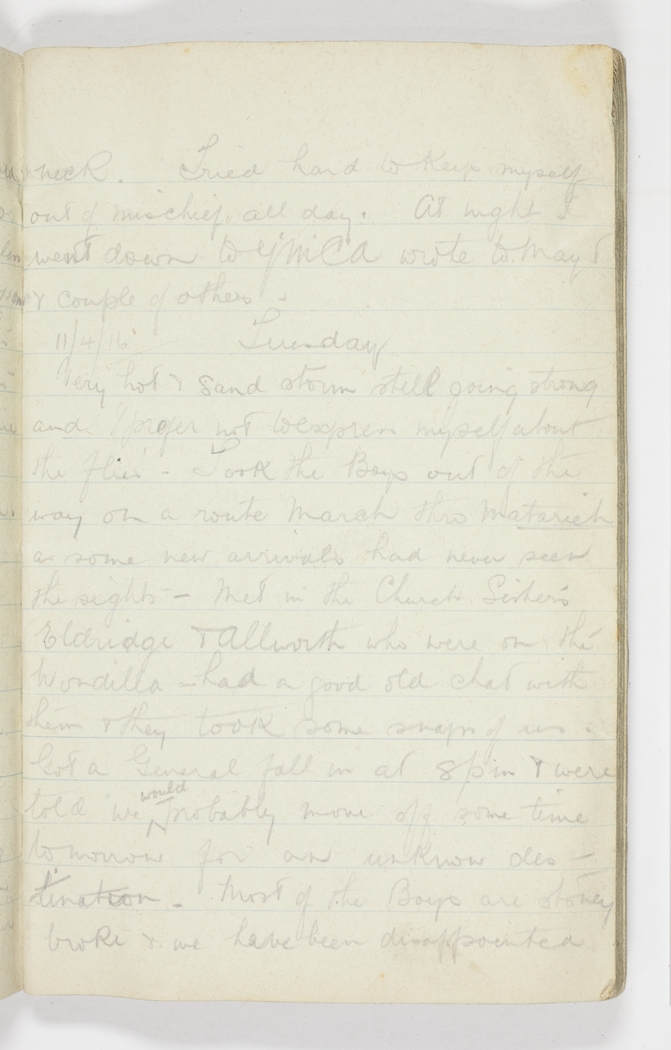 neck. Tried hard to keep myself
out of mischief all day. At night I
went down to YMCA wrote to May
& couple of others.
11/4/16 Tuesday
Very hot & sand storm still going strong
and I prefer not to express myself about
the flies - Took the Boys out of the
way on a route march thro Matarieh
as some new arrivals had never seen
the sights - Met in the Church Sisters
Eldridge & Allworth who were on the
Wandilla - had a good old chat with
them & they took some snaps of us.
Got a General fall in at 8 pm & were
told we would probably move off some time
tomorrow for an unknow des-
tination. Most of the Boys are stoney
broke & we have been disappointed